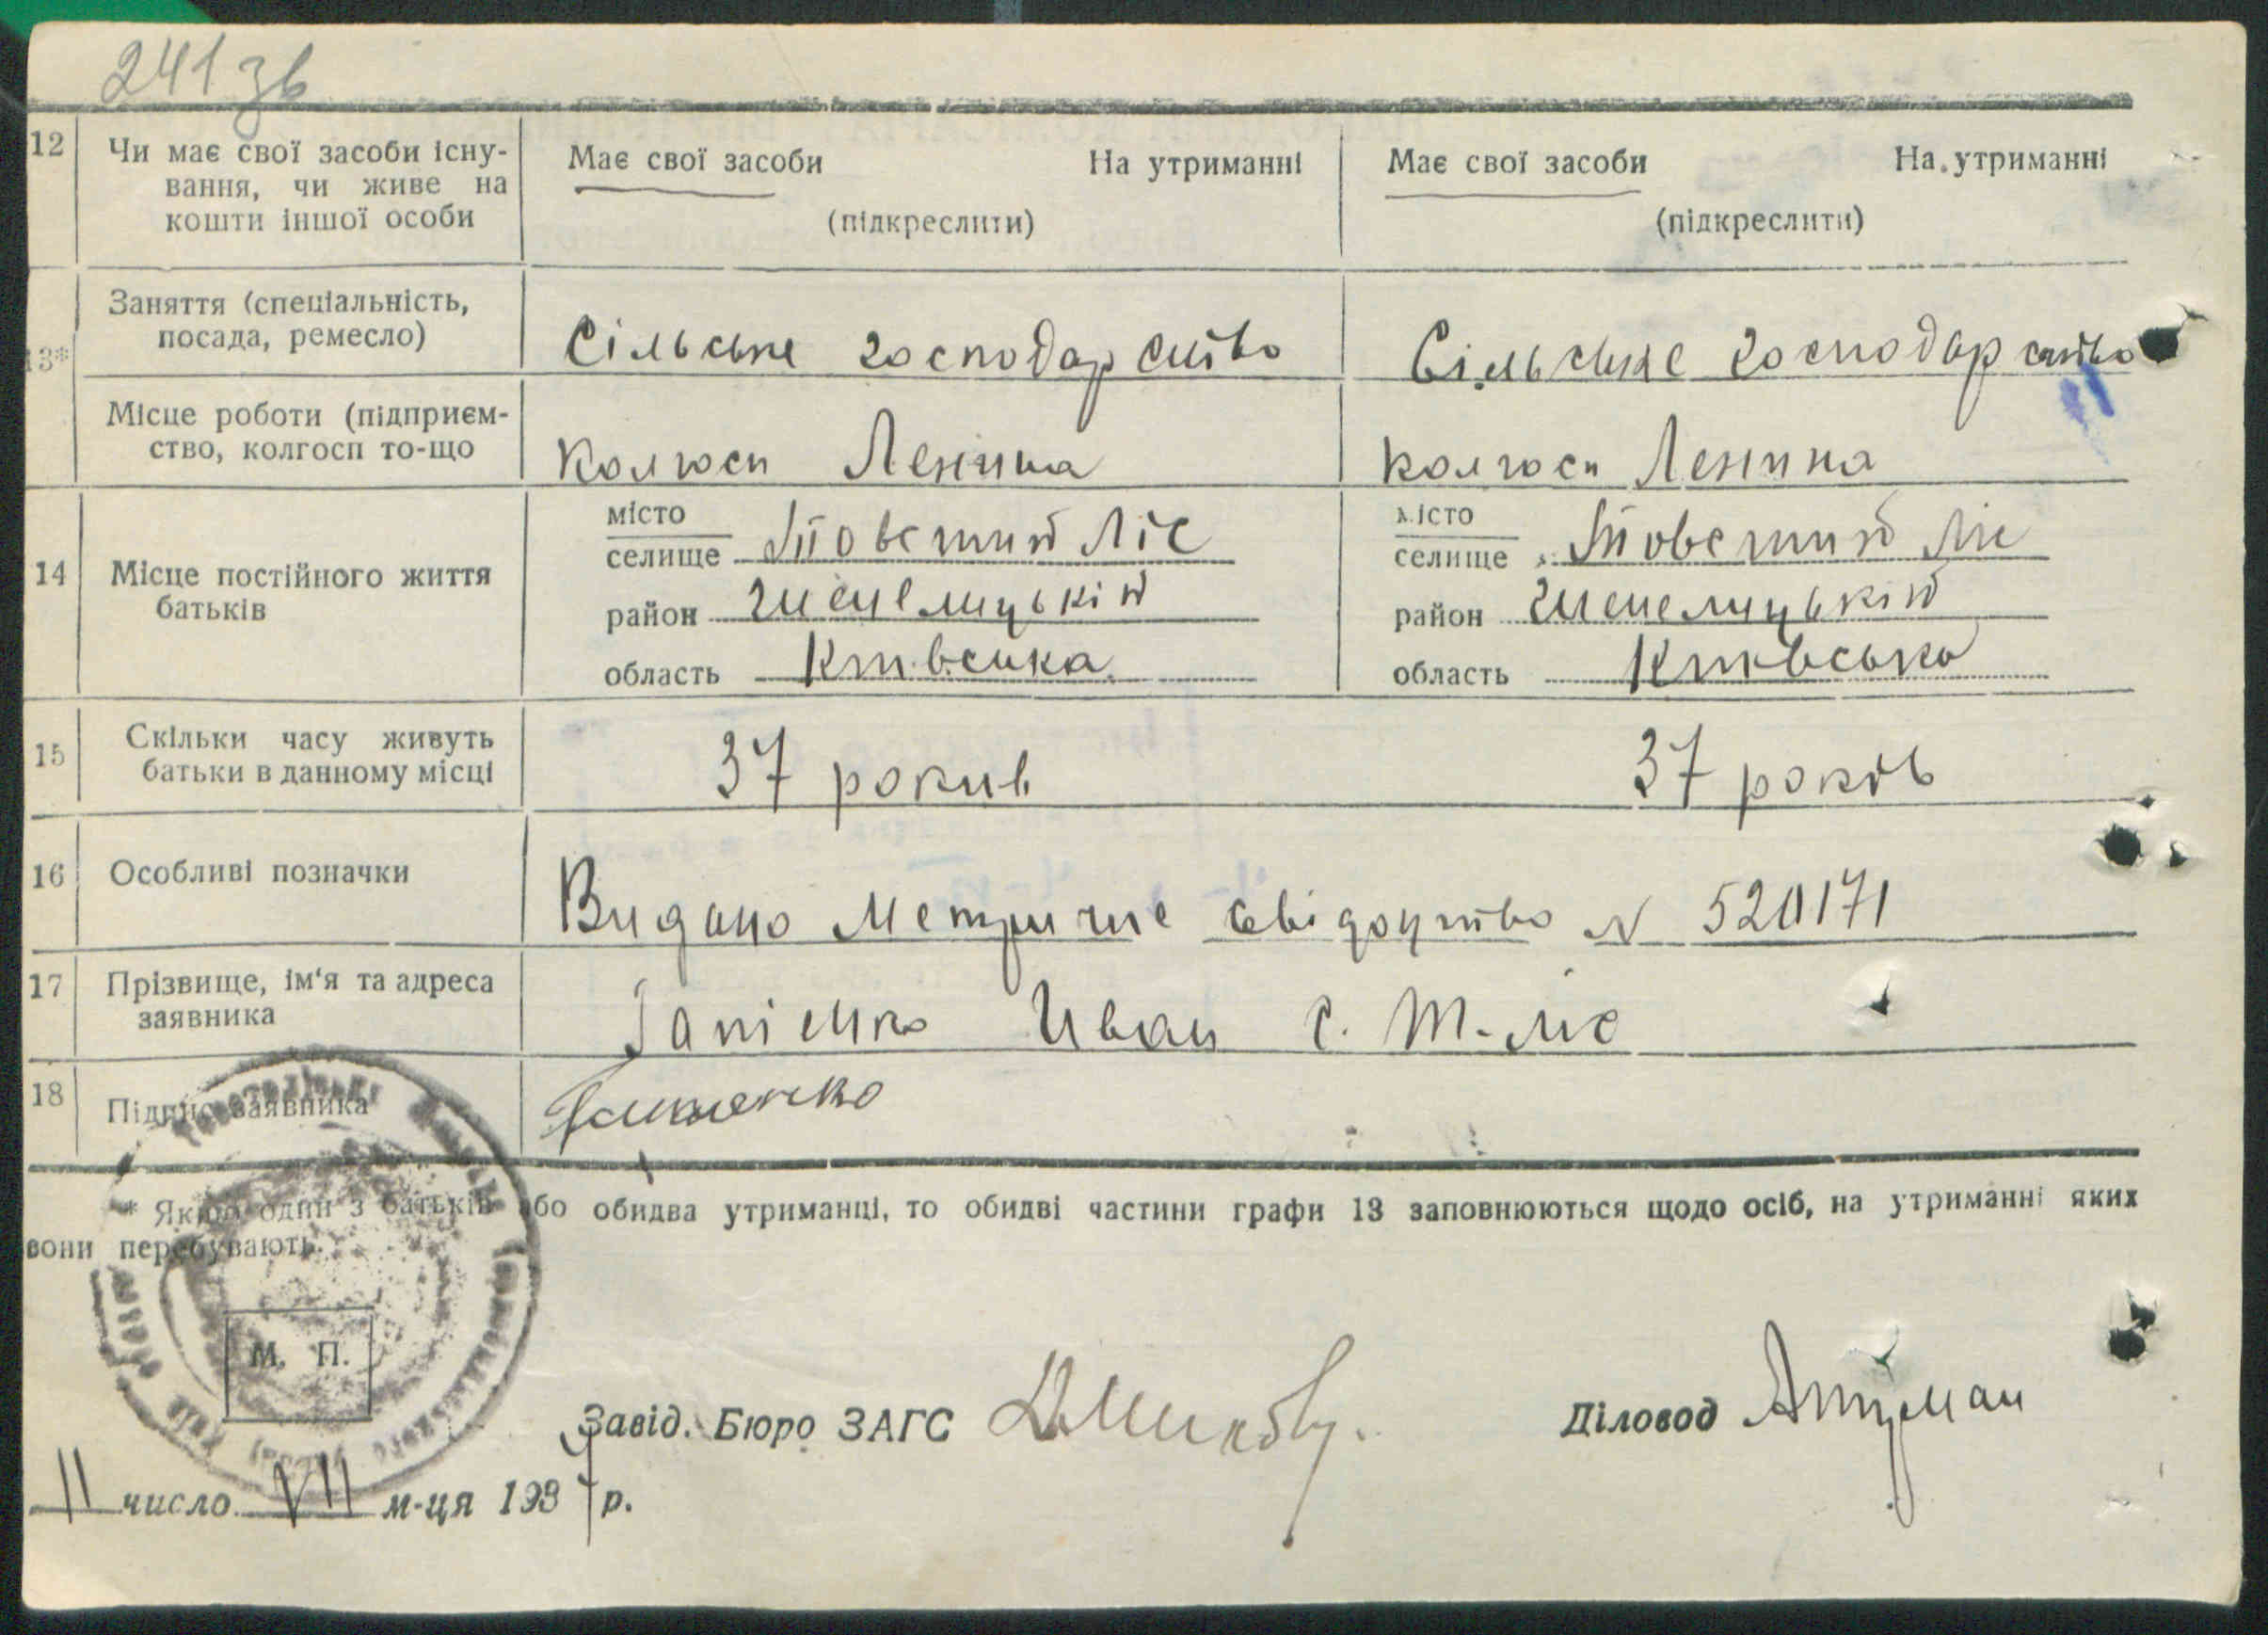 241 зв
12 Чи має свої засоби існу-
вання, чи живе на
кошти іншої особи
Має свої засоби На утриманні
(підкреслити)
Має свої засоби На утриманні
(підкреслити)
13*
Заняття (спеціальність,
посада, ремесло)
Сільське господарство
Сільське господарство
Місце роботи (підприєм-
ство, колгосп то-що
колгосп Ленина
колгосп Ленина
14 Місце постійного життя
батьків
місто
селище Товстий Ліс
район
область Київська
місто
селище Товстий Ліс
район
область Київська
15 Скільки часу живуть
батьки в данному місці
37 рокив
37 років
16 Особливі позначки
Видано Метричне свідоцтво N 520171
17 Прізвище, ім'я та адреса
заявника
Иван с. Т-ліс
18 Підпис заявника
* Якщо один з батьків або обидва утриманці, то обидві частини графи 13 заповнюються щодо осіб, на утриманні яких
вони перебувають.
М. П.
Завід. Бюро ЗАГС
Діловод
11 число VII м-ця 1937 р.